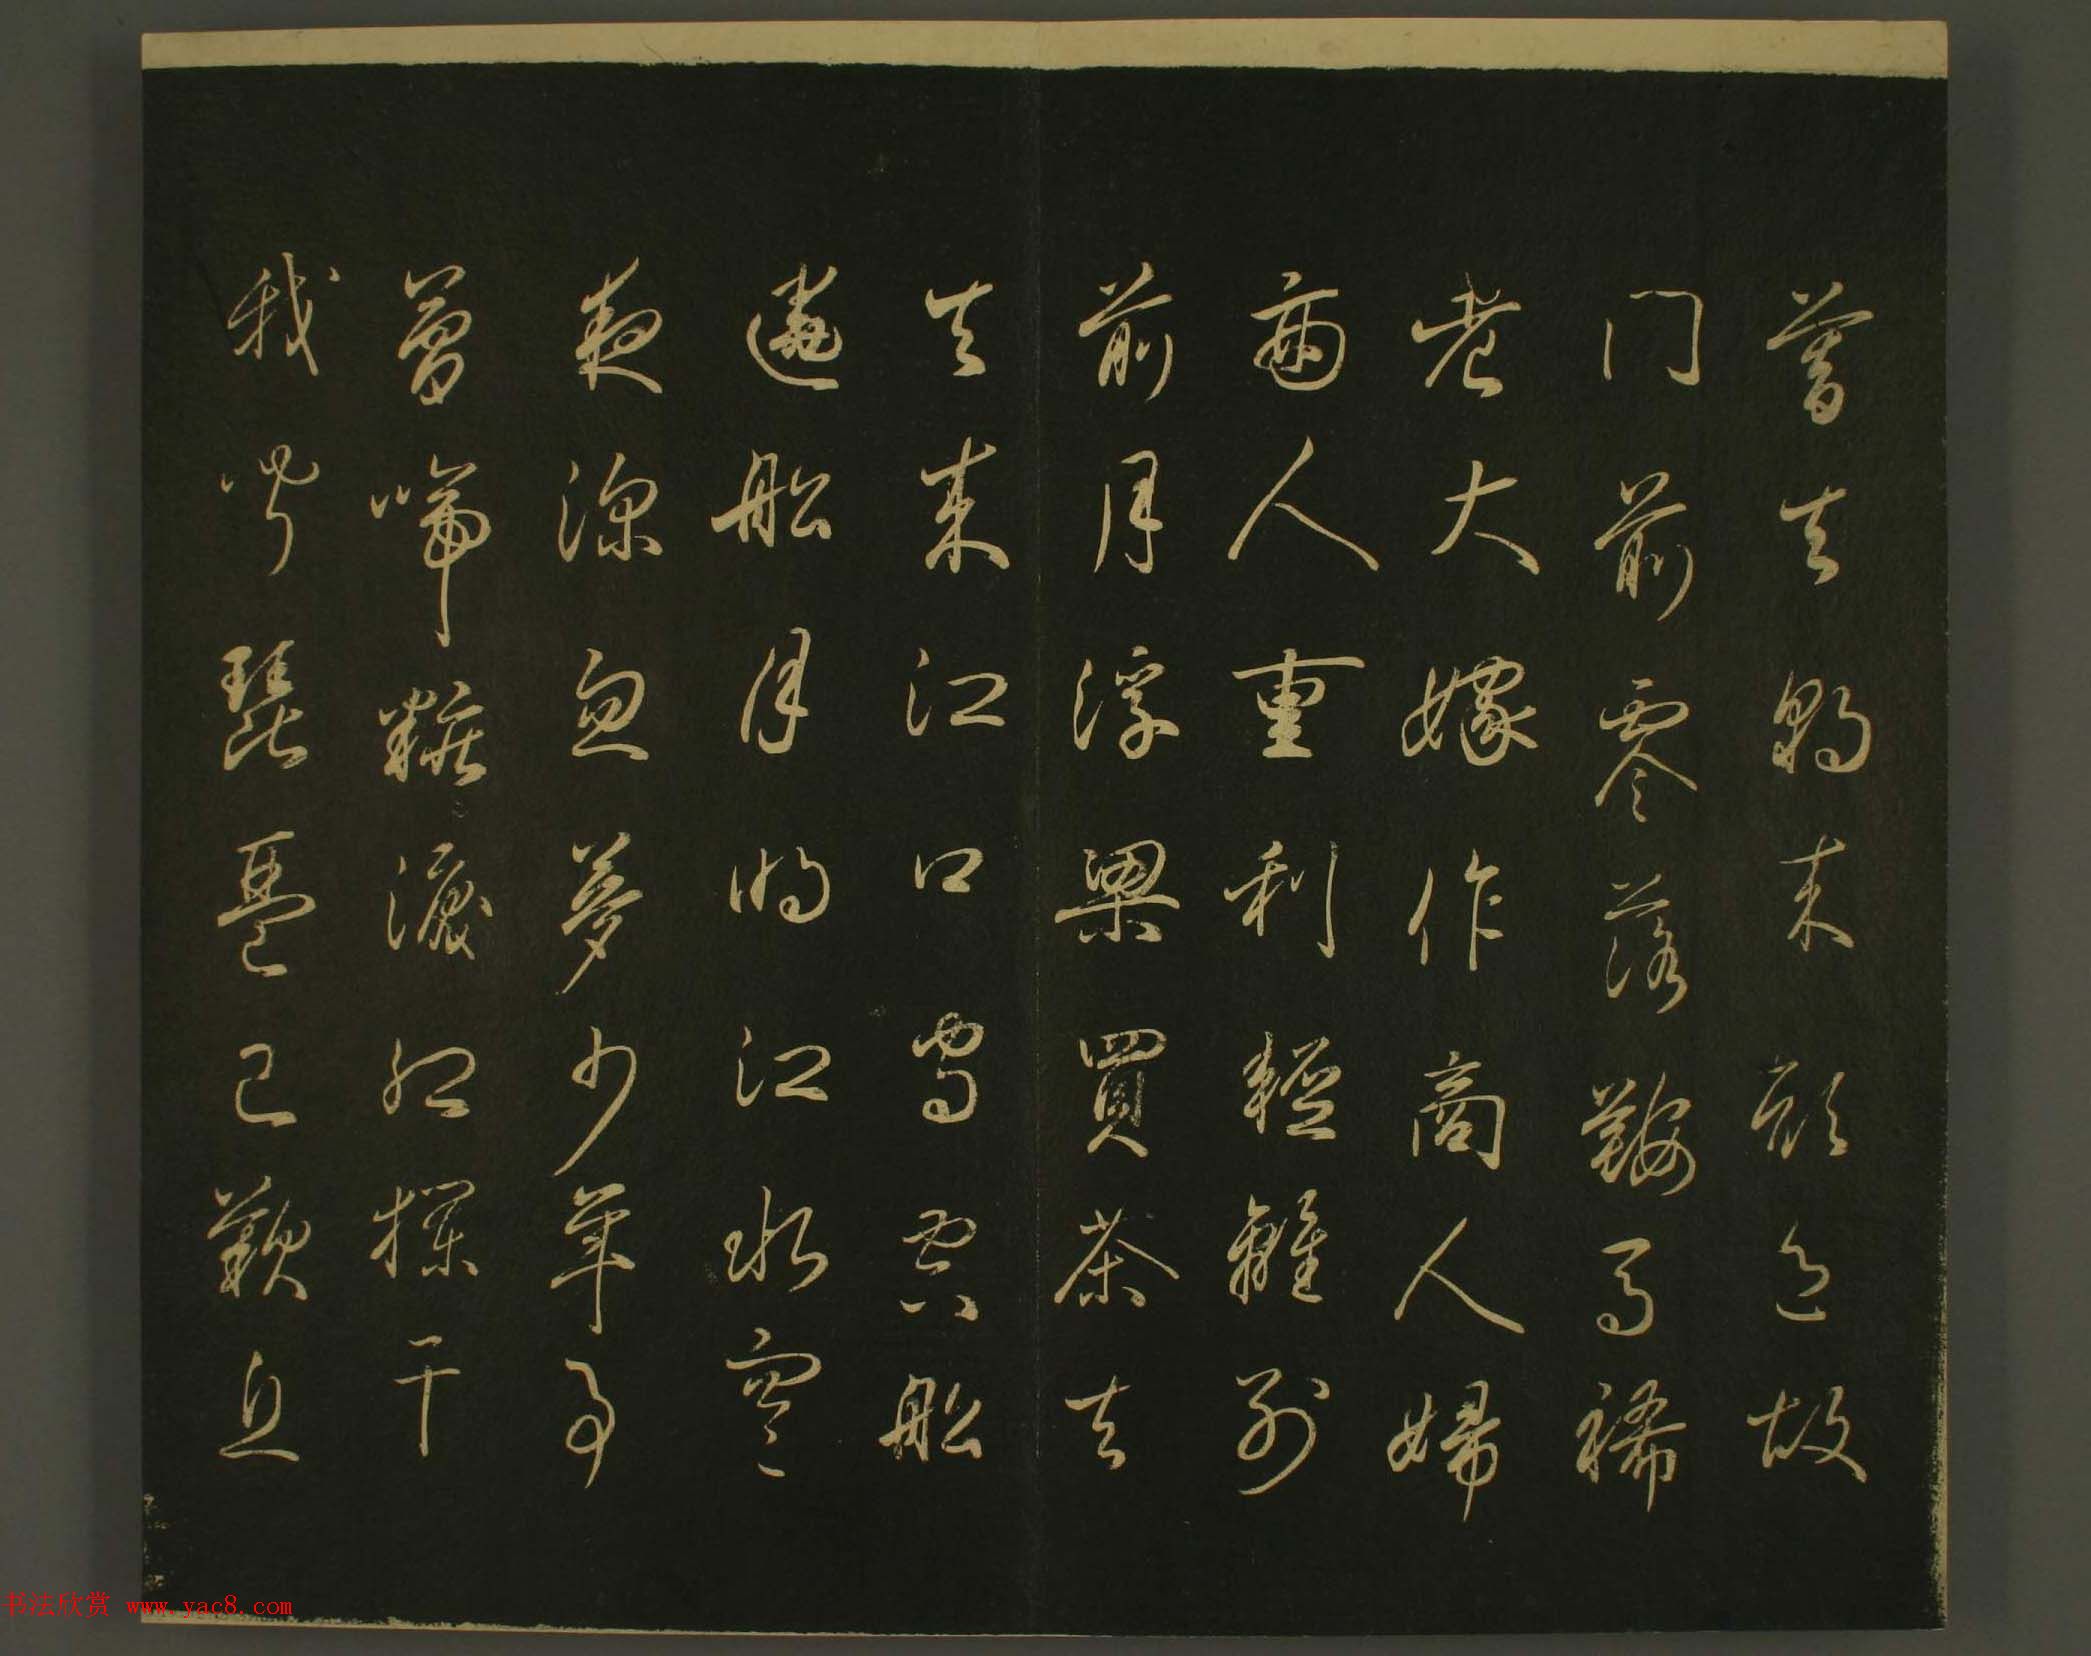 暮去朝来顔色故
門前零落鞍馬稀
老大嫁作商人婦
商人重利輕離別
前月浮梁買茶去
去来江口守空船
遶船月明江水寒
夜深忽夢少年事
夢啼粧淚紅欄干
我聞琵琶已歎息
书法欣赏 www.yac8.com